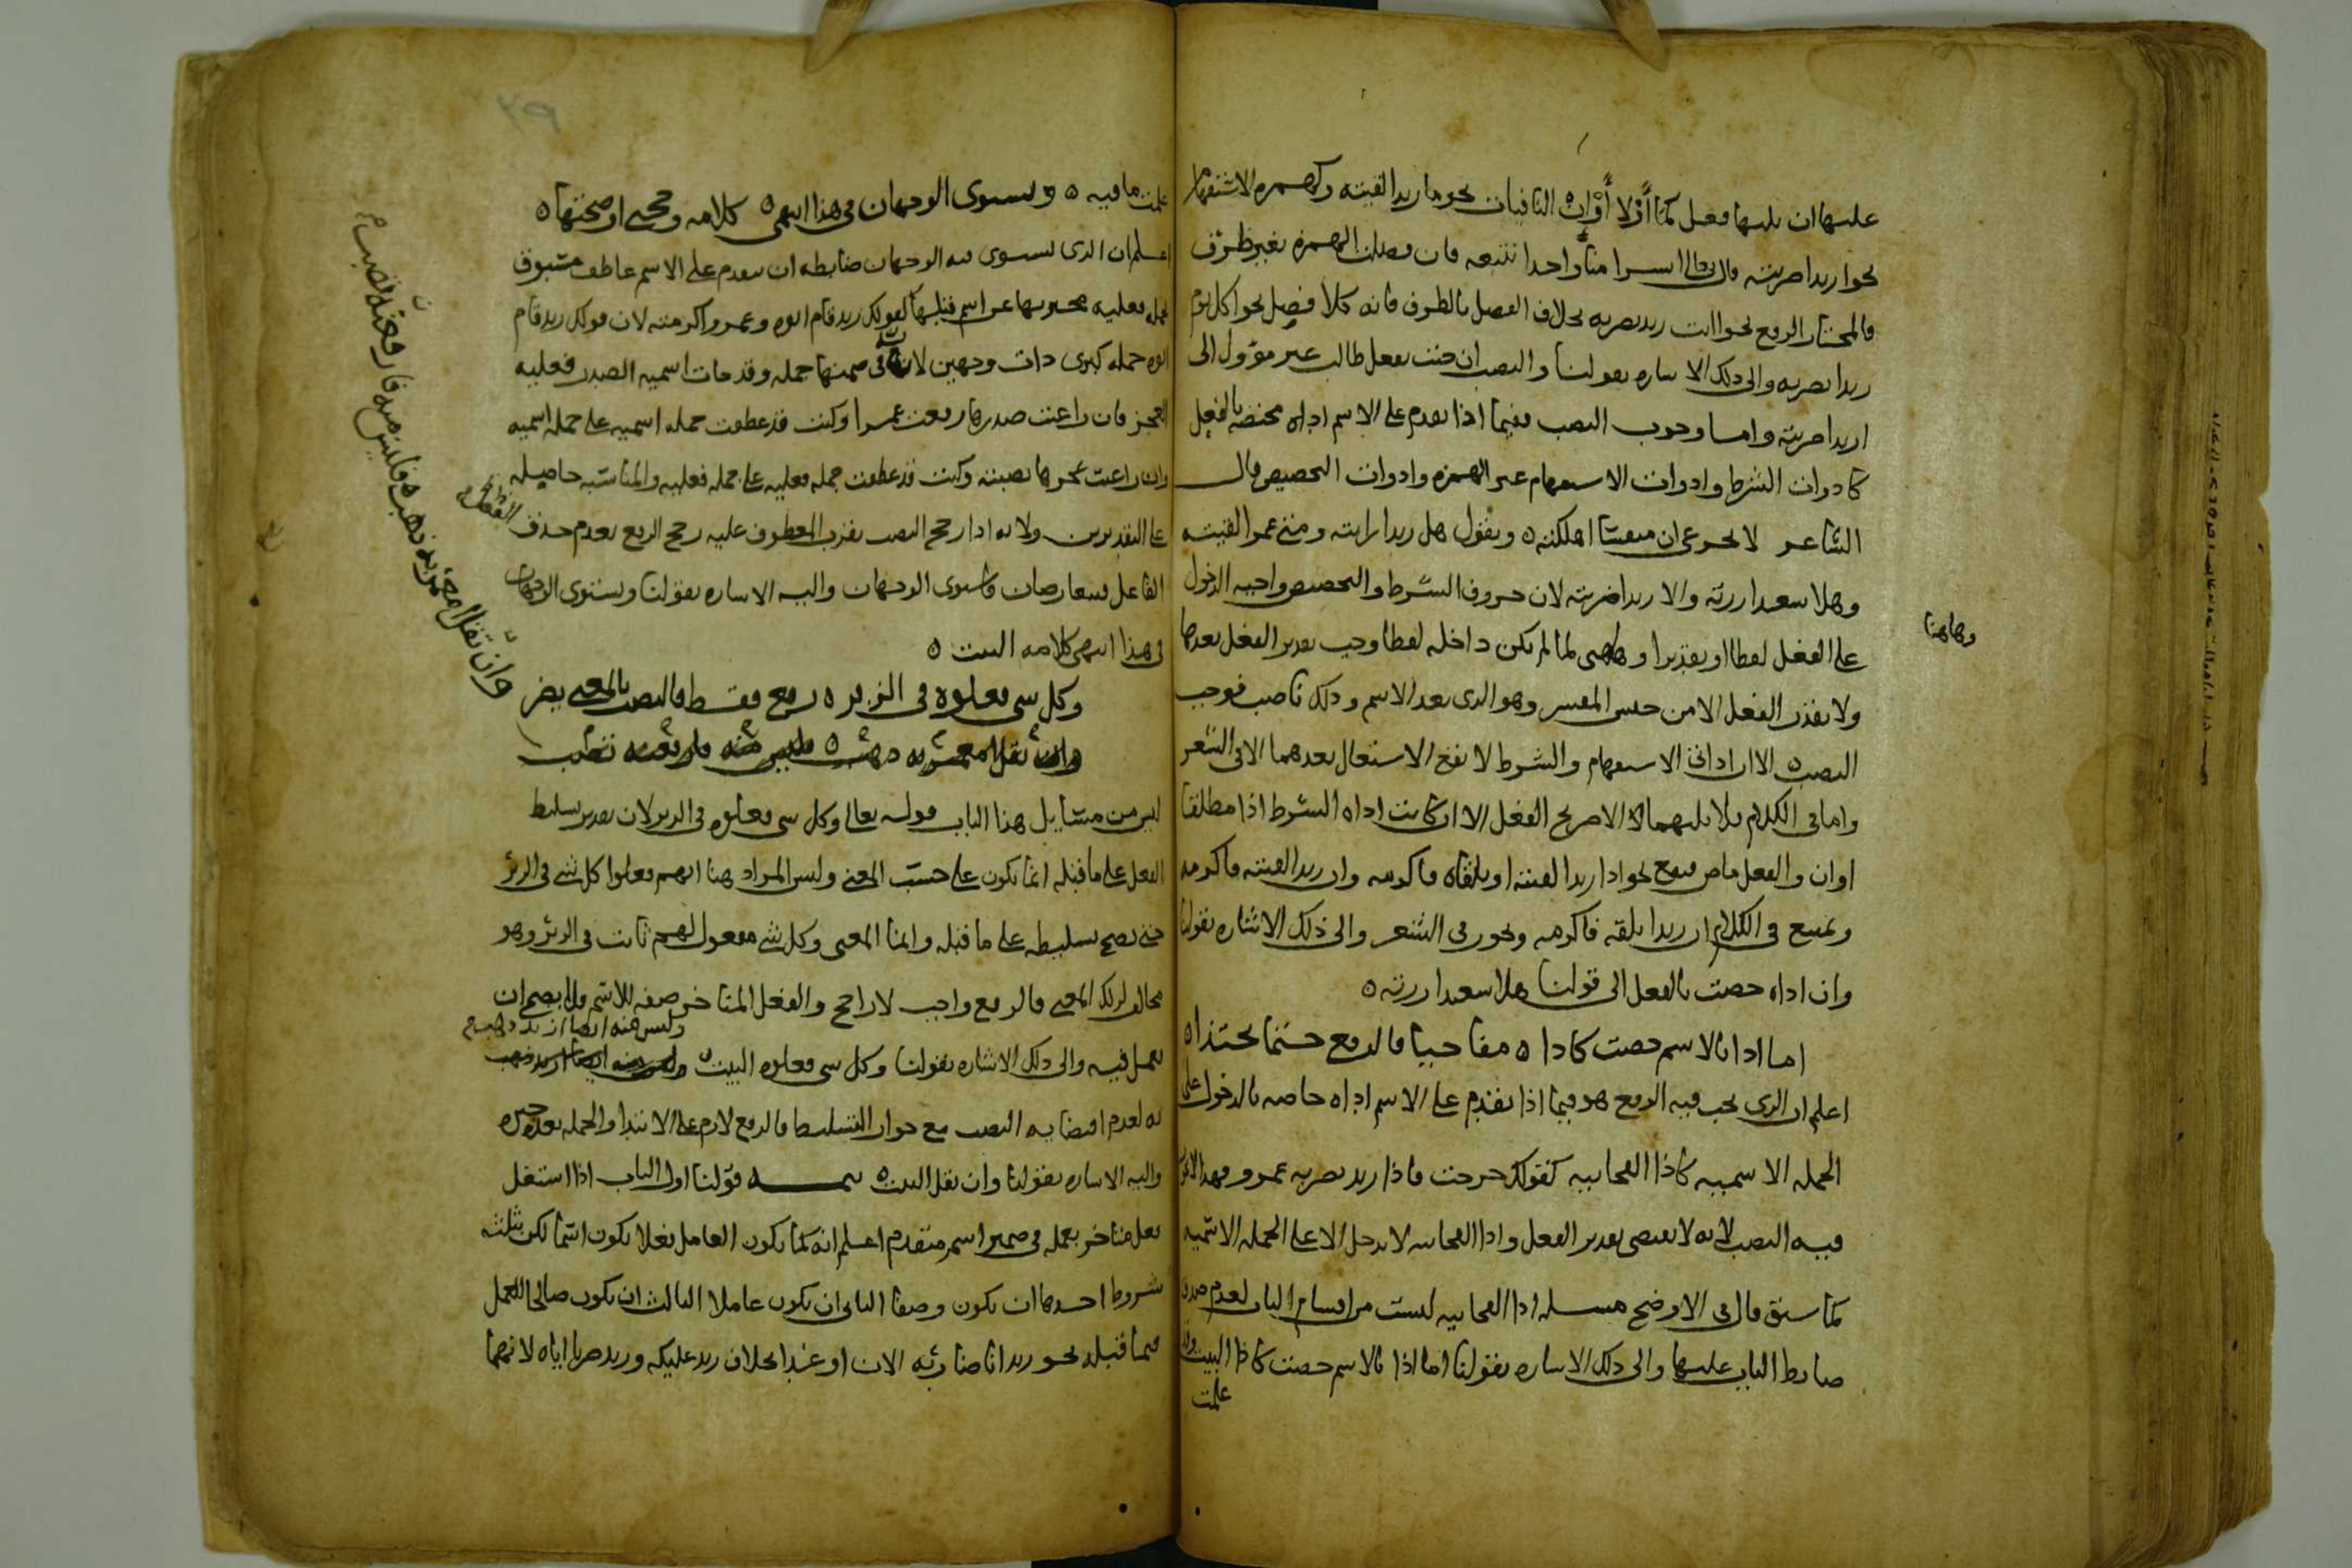 عليها ان يليها فعل كما ولا وان النافيات نحو ما زيدا لقيته وكهمزه الاستفهام
نحو ازيدا ضربته قال تعالى ابشرا منا واحدا نتبعه فان فصلت الهمزه بغير ظرف
فالمختار الرفع نحو اانت زيد تضربه بخلاف الفصل بالظرف فانه كلا فصل نحو اكل يوم
زيدا تضربه والى ذلك الاشاره بقولنا والنصب ان جئت بفعل طالب غير موول الى
ازيدا ضربته واما وجوب النصب ففيما اذا تقدم على الاسم اداه مختصه بالفعل
كادوات الشرط وادوات الاستفهام غير الهمزه وادوات التحضيض قال
الشاعر لا تجزعى ان منفسا اهلكته ٥ وتقول هل زيدا رايته ومتى عمرا لقيته
وهلا سعدا زرته والا زيدا ضربته لان حروف الشرط والتحضيض واجبه الدخول
على الفعل لفظا او تقديرا لما لم يكن داخله لفظا وجب تقدير الفعل بعدها
وهاهنا
ولا يقدر الفعل الا من جنس المفسر وهو الذى بعد الاسم وذلك ناصب فوجب
النصب ٥ الا ان اداتى الاستفهام والشرط لا يقع الاشتغال بعدهما الا فى الشعر
واما فى الكلام فلا يليهما الا صريح الفعل الا ان كانت اداه الشرط اذا مطلقا
او ان والفعل ماض فيقع نحو اذا زيدا لقيته او تلقاه فاكرمه وان زيدا لقيته فاكرمه
ويمتنع فى الكلام ان زيدا تلقه فاكرمه ويجوز فى الشعر والى ذلك الاشاره بقولنا
وان اداه خصت بالفعل الى قولنا هلا سعدا زرته ٥
اما اذا بالاسم خصت كاذا ٥ مفاجيا فالرفع حتما يحتذا ٥
اعلم ان الذى يجب فيه الرفع هو فيما اذا تقدم على الاسم اداه خاصه بالدخول على
الجمله الاسميه كاذا الفجاييه كقولك خرجت فاذا زيد يضربه عمرو فهذا لا يجوز
فيه النصب لانه لا يقتضى تقدير الفعل واذا الفجاييه لا تدخل الا على الجمله الاسميه
كما سبق قال فى الاوضح مسله اذا الفجاييه ليست من اقسام الباب لعدم صدق
ضابط الباب عليها والى ذلك الاشاره بقولنا اما اذا بالاسم خصت كاذا البيت وقد
علمت
علمت ما فيه ٥ ويستوى الوجهان فى هذا انتهى ٥ كلامه وحجى اوضحتها ٥
اعلم ان الذى يستوى فيه الوجهان ضابطه ان يتقدم على الاسم عاطف مسبوق
بجمله فعليه مخبر بها عن اسم قبلها كقولك زيد قام ابوه وعمرو اكرمته لان قولك زيد قام
ابوه جمله كبرى ذات وجهين لان فى ضمنها جمله وقد جات اسميه الصدر فعليه
العجز فان راعيت صدرها رفعت عمرا وكنت قد عطفت جمله اسميه على جمله اسميه
وان راعيت عجزها نصبته وكنت قد عطفت جمله فعليه على جمله فعليه والمناسبه حاصله
على التقديرين ولانه اذا رجح النصب بقرب المعطوف عليه رجح الرفع بعدم حذف الفعل
الفاعل فتعارضان فاستوى الوجهان واليه الاشاره بقولنا ويستوى الوجهان
فى هذا انتهى كلامه البيت ٥
وكل شى فعلوه فى الزبر ٥ رفع فقط فالنصب بالمعنى يضر
وان تقل ازيد به ذهب ٥ فليس منه فارفعنه تصب
وان تقل ازيد به ذهب فليس منه فارفعنه تصب
ليس من مسايل هذا الباب قوله تعالى وكل شى فعلوه فى الزبر لان تقدير تسليط
الفعل على ما قبله انما يكون على حسب المعنى وليس المراد هنا انهم فعلوا كل شى فى الزبر
حتى يصح تسليطه على ما قبله وانما المعنى وكل شى مفعول لهم ثابت فى الزبر وهو
مخالف لذلك المعنى فالرفع واجب لا راجح والفعل المتاخر صفه للاسم فلا يصح ان
وليس منه ايضا ازيد ذهب
يعمل فيه والى ذلك الاشاره بقولنا وكل شى فعلوه البيت ٥ وليس منه ايضا ازيد ذهب
به لعدم اقتضايه النصب مع جواز التسليط فالرفع لازم على الابتدا والجمله بعده خبره
واليه الاشاره بقولنا وان تقل البيت ٥ تتمه قولنا اول الباب اذا اشتغل
فعل متاخر بعمله فى ضمير اسم متقدم اعلم انه كما يكون العامل فعلا يكون اسما لكن بثلثه
شروط احدها ان يكون وصفا الثانى ان يكون عاملا الثالث ان يكون صالحا للعمل
فيما قبله نحو زيد انا ضاربه الان او غدا بخلاف زيد عليكه وزيد ضربا اياه لانهما
٢٩